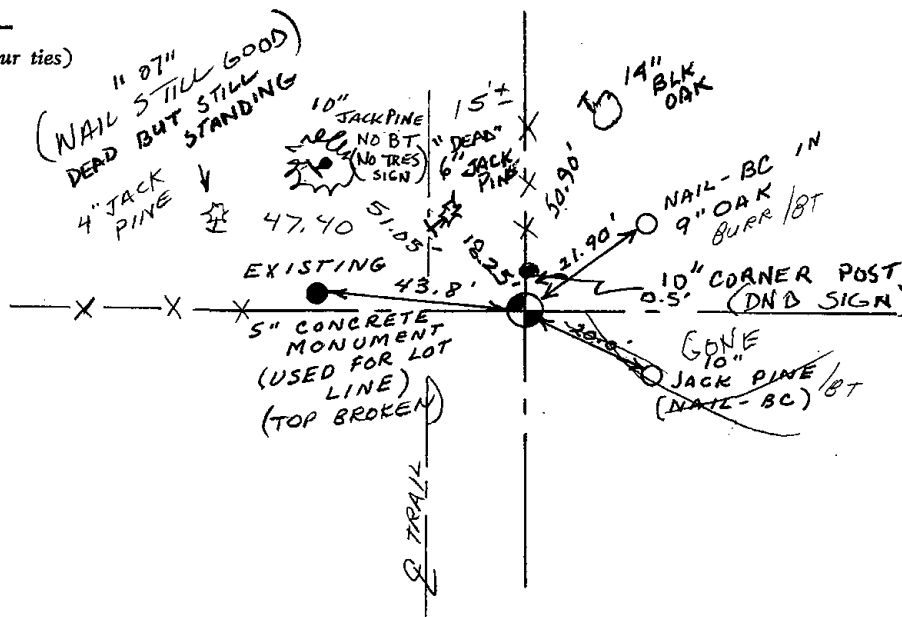 ur ties)
" 07"
(NAIL STILL GOOD)
DEAD BUT STILL
STANDING
4" JACK
PINE
10"
JACK PINE
NO BT
(NO TRES
SIGN)
15'±
"DEAD"
6" JACK
PINE
14"
BLK
OAK
50.90'
NAIL-BC IN
9" OAK
BURR/BT
47.40
51.05'
18.25'
21.90'
EXISTING
43.8'
10" CORNER POST
0.5'
(DNB SIGN)
5" CONCRETE
MONUMENT
(USED FOR LOT
LINE)
(TOP BROKEN)
20.0'
GONE
10"
JACK PINE/BT
(NAIL-BC)
TRAIL